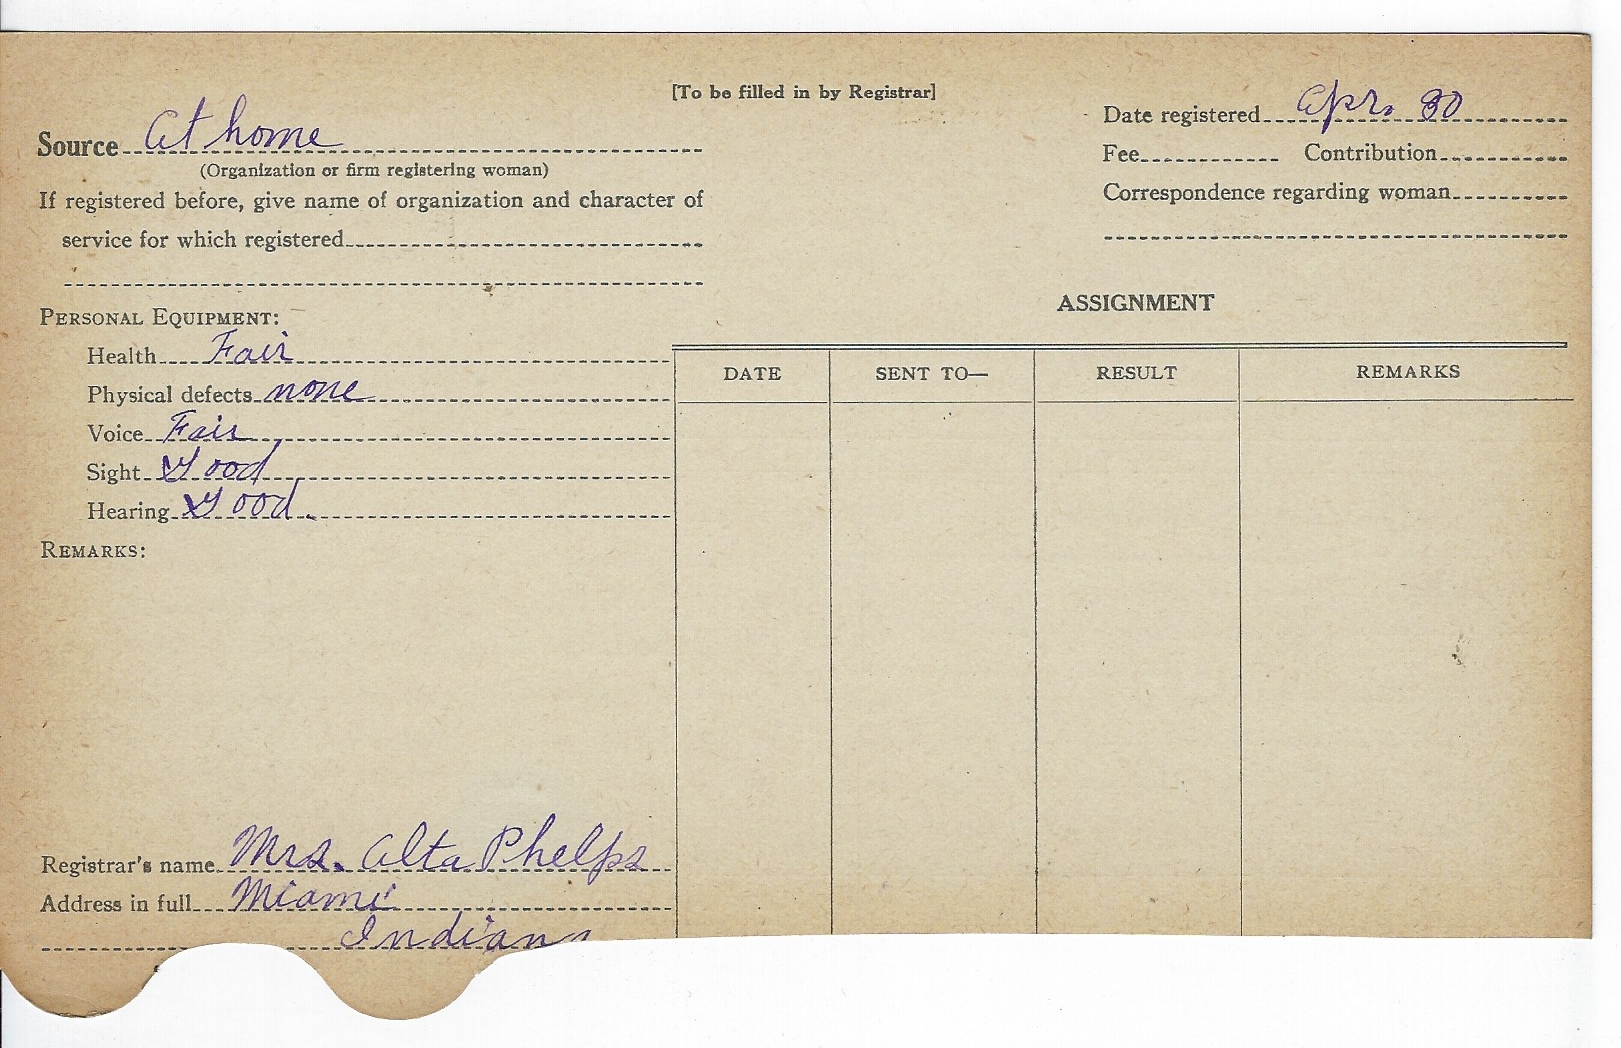 [To be filled in by Registrar]
Source At home
(Organization or firm registering woman)
If registered before, give name of organization and character of
service for which registered
PERSONAL EQUIPMENT:
Health Fair
Physical defects none
Voice Fair
Sight Good
Hearing Good.
REMARKS:
Registrar's name Mrs. Alta Phelps
Address in full Miami
Indiana
Date registered Apr. 30
Fee Contribution
Correspondence regarding woman
ASSIGNMENT
DATE SENT TO— RESULT REMARKS